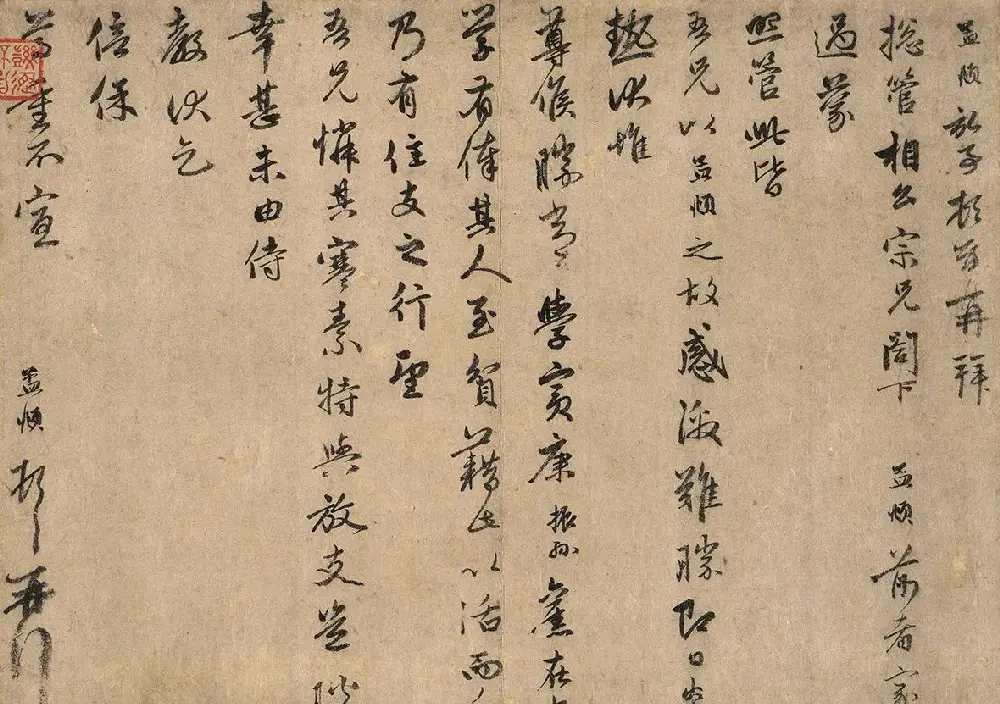 孟頫記事頓首再拜
總管相公宗兄閣下孟頫前者家
過蒙
照管此皆
吾兄以孟頫之故感激難勝即日
熱伏惟
尊候勝常學賓康振孫舊在
學有俸其人至貧藉此以活而
乃有住支之行望
吾兄憐其寒素特與放支豈勝
幸甚未由侍
教伏乞
倍保
尊重不宣孟頫頓首再拜